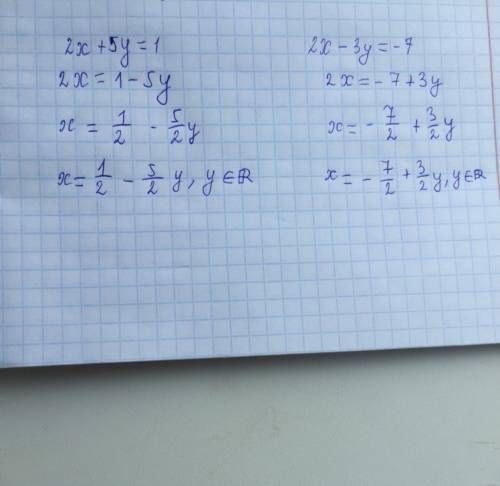 2x + 5y = 1
2x = 1 - 5y
x = 1/2 - 5/2 y
x = 1/2 - 5/2 y, y ∈ ℝ
2x - 3y = -7
2x = -7 + 3y
x = -7/2 + 3/2 y
x = -7/2 + 3/2 y, y ∈ ℝ